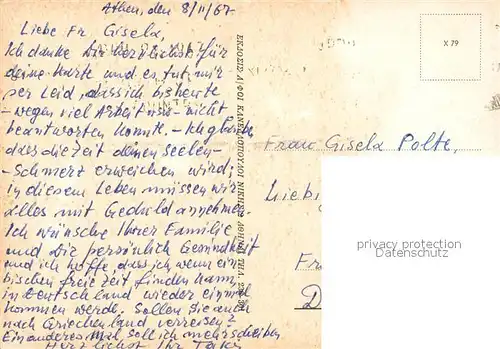 Athen, den 8/11/67.
Liebe Fr. Gisela,
Ich danke Dir herzlichst für
deine Karte und es tut mir
sehr Leid, dass ich bis heute
- wegen viel Arbeit usw - nicht
beantworten konnte. - Ich glaube
dass die Zeit deinen Seelen-
- Schmerz erweichen wird;
in diesem Leben müssen wir
alles mit Geduld annehmen.
Ich wünsche Ihrer Familie
und Die persönlich Gesundheit
und ich hoffe, dass ich, wenn ein
bischen freie Zeit finden kann,
in Deutschland wieder einmal
kommen werde. Sollen Sie auch
nach Griechenland verreisen?
Ein anderes Mal, soll ich mehr schreiben
Herzlichst Ihr
ΕΚΔΟΣΙΣ ΑΦΟΙ
X 79
Frau Gisela Polte,
privacy protection
Datenschutz